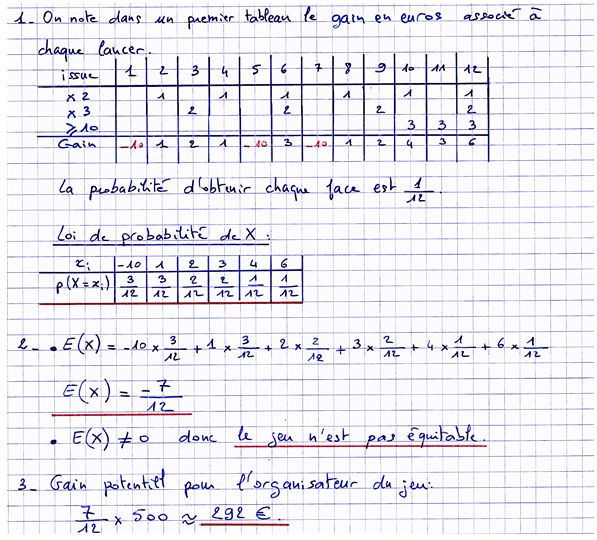 1- On note dans un premier tableau le gain en euros associé à
chaque lancer.
issue 1 2 3 4 5 6 7 8 9 10 11 12
x 2 1 1 1 1 1 1
x 3 2 2 2 2
⩾10 3 3 3
Gain -10 1 2 1 -10 3 -10 1 2 4 3 6
La probabilité d'obtenir chaque face est 1/12.
Loi de probabilité de X :
xi -10 1 2 3 4 6
p(X=xi) 3/12 3/12 2/12 2/12 1/12 1/12
2- • E(X) = -10 × 3/12 + 1 × 3/12 + 2 × 2/12 + 3 × 2/12 + 4 × 1/12 + 6 × 1/12
E(X) = -7/12
• E(X) ≠ 0 donc le jeu n'est pas équitable.
3- Gain potentiel pour l'organisateur du jeu:
7/12 × 500 ≈ 292 €.